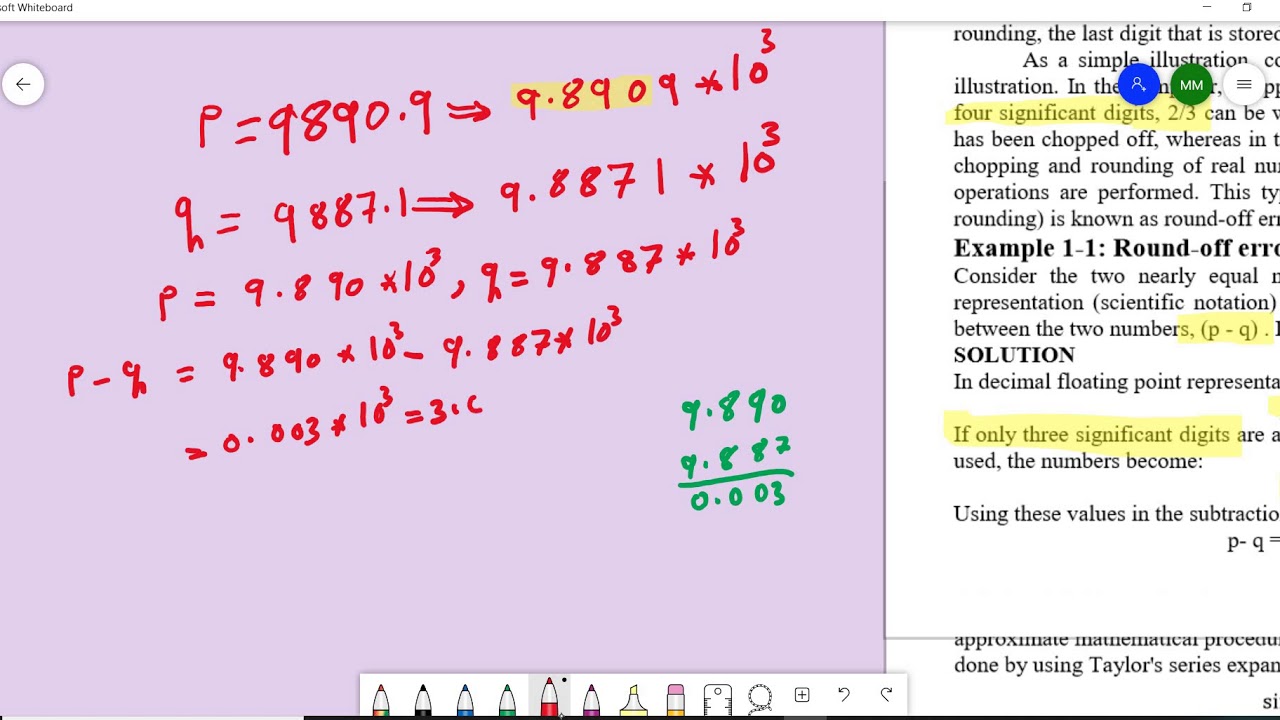 soft Whiteboard
P = 9890.9 ⇒ 9.8909 * 10^3
q = 9887.1 ⇒ 9.8871 * 10^3
P = 9.890 * 10^3, q = 9.887 * 10^3
P - q = 9.890 * 10^3 - 9.887 * 10^3
= 0.003 * 10^3 = 3.
9.890
9.887
0.003
rounding, the last digit that is stored
As a simple illustration, co
illustration. In the
four significant digits, 2/3 can be w
has been chopped off, whereas in t
chopping and rounding of real nu
operations are performed. This ty
rounding) is known as round-off err
Example 1-1: Round-off erro
Consider the two nearly equal n
representation (scientific notation)
between the two numbers, (p - q) .
SOLUTION
In decimal floating point representa
If only three significant digits are a
used, the numbers become:
Using these values in the subtractio
p- q =
approximate mathematical procedu
done by using Taylor's series expan
si
MM